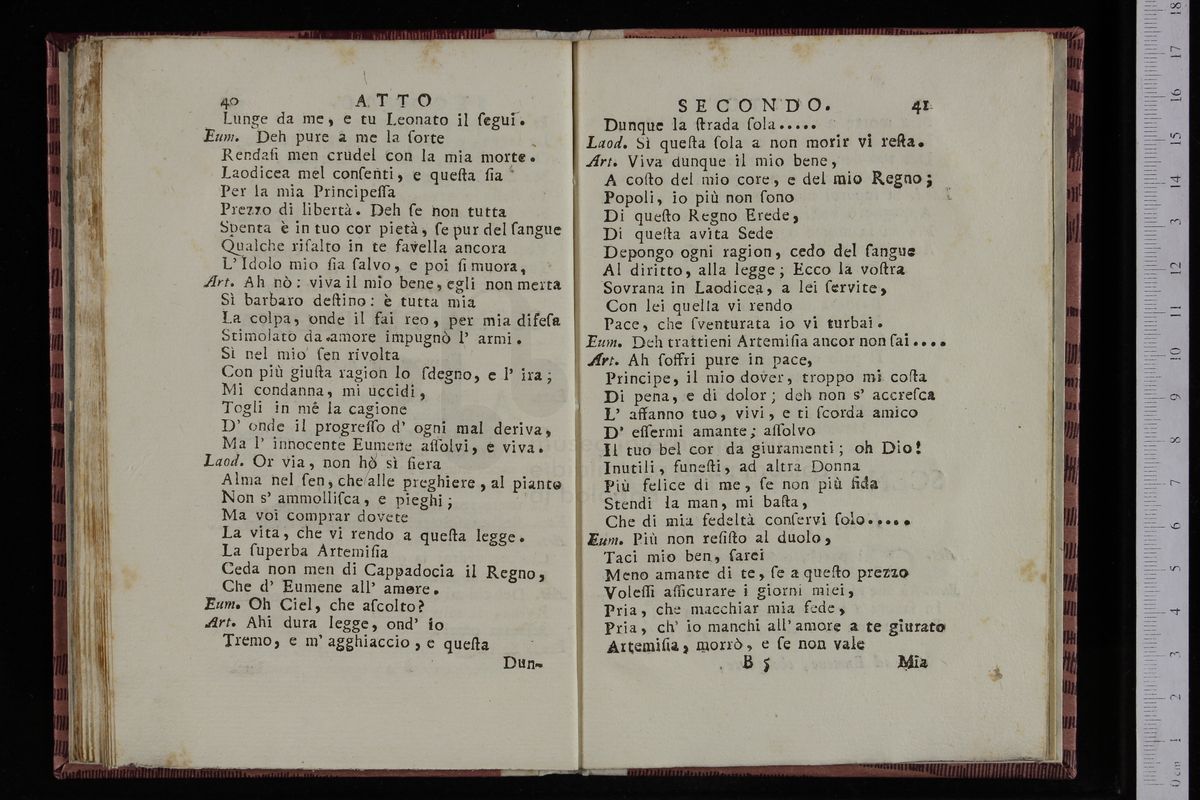 40 ATTO
Lunge da me, e tu Leonato il ſegui.
Eum. Deh pure a me la ſorte
Rendaſi men crudel con la mia morte.
Laodicea mel conſenti, e queſta ſia
Per la mia Principeſſa
Prezzo di libertà. Deh ſe non tutta
Spenta è in tuo cor pietà, ſe pur del ſangue
Qualche riſalto in te favella ancora
L' Idolo mio ſia ſalvo, e poi ſi muora,
Art. Ah nò: viva il mio bene, egli non merta
Sì barbaro deſtino: è tutta mia
La colpa, onde il fai reo, per mia difeſa
Stimolato da amore impugnò l' armi.
Sì nel mio ſen rivolta
Con più giuſta ragion lo ſdegno, e l' ira;
Mi condanna, mi uccidi,
Togli in mè la cagione
D' onde il progreſſo d' ogni mal deriva,
Ma l' innocente Eumene aſſolvi, e viva.
Laod. Or via, non hò sì fiera
Alma nel ſen, che alle preghiere, al pianto
Non s' ammolliſca, e pieghi;
Ma voi comprar dovete
La vita, che vi rendo a queſta legge.
La ſuperba Artemiſia
Ceda non men di Cappadocia il Regno,
Che d' Eumene all' amore.
Eum. Oh Ciel, che aſcolto?
Art. Ahi dura legge, ond' io
Tremo, e m' agghiaccio, e queſta
Dun-
SECONDO. 41
Dunque la ſtrada ſola.....
Laod. Sì queſta ſola a non morir vi reſta.
Art. Viva dunque il mio bene,
A coſto del mio core, e del mio Regno;
Popoli, io più non ſono
Di queſto Regno Erede,
Di queſta avita Sede
Depongo ogni ragion, cedo del ſangue
Al diritto, alla legge; Ecco la voſtra
Sovrana in Laodicea, a lei ſervite,
Con lei quella vi rendo
Pace, che ſventurata io vi turbai.
Eum. Deh trattieni Artemiſia ancor non ſai....
Art. Ah ſoffri pure in pace,
Principe, il mio dover, troppo mi coſta
Di pena, e di dolor; deh non s' accreſca
L' affanno tuo, vivi, e ti ſcorda amico
D' eſſermi amante; aſſolvo
Il tuo bel cor da giuramenti; oh Dio!
Inutili, funeſti, ad altra Donna
Più felice di me, ſe non più fida
Stendi la man, mi baſta,
Che di mia fedeltà conſervi ſolo.....
Eum. Più non reſiſto al duolo,
Taci mio ben, ſarei
Meno amante di te, ſe a queſto prezzo
Voleſſi aſſicurare i giorni miei,
Pria, che macchiar mia fede,
Pria, ch' io manchi all' amore a te giurato
Artemiſia, morrò, e ſe non vale
B 5 Mia